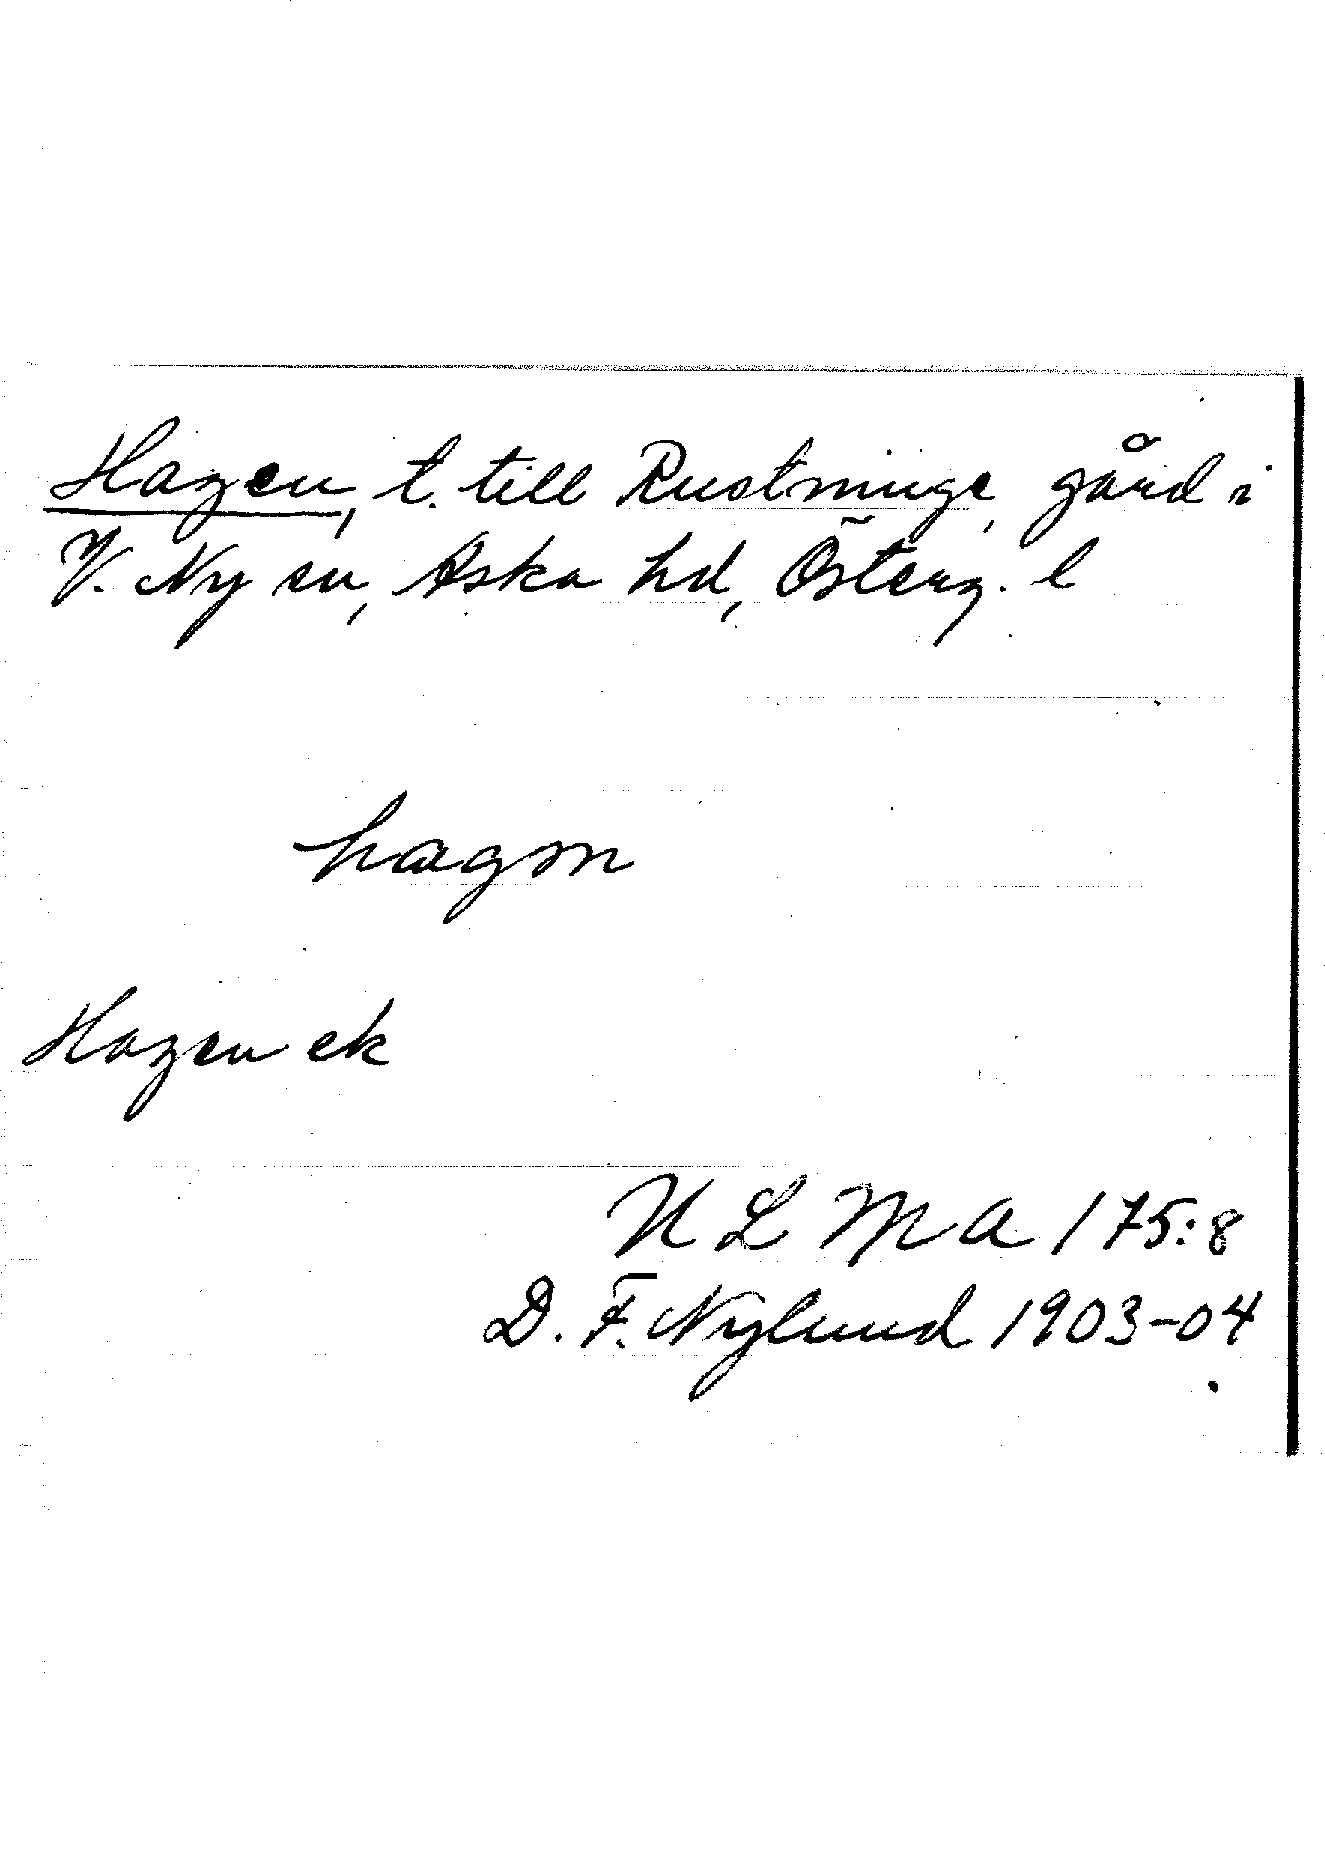 Hagen, t. till Rustminge, gård i
V. Ny sn, Aska hd, Österg. l
hagɷn
Hagen ek
ULMA 175:8
D. F. Nylund 1903-04